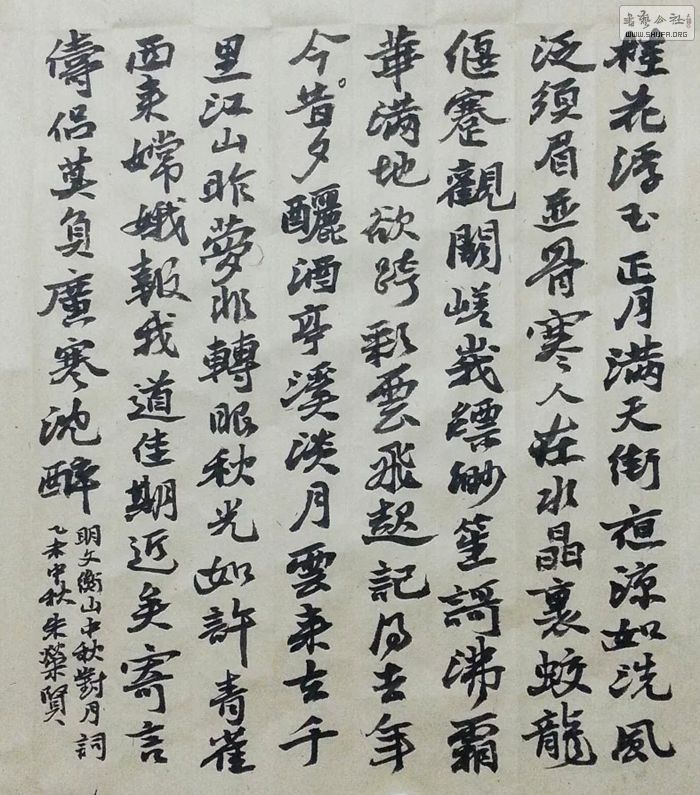 桂花浮玉正月满天街夜凉如洗風
泛須眉並骨寒人在水晶裏蛟龍
偃蹇觀闕嵯峩縹緲笙謌沸霜
華满地欲跨彩雲飛起記得去年
今昔夕釃酒亭溪淡月雲来去千
里江山昨夢非轉眼秋光如許青雀
西来嫦娥報我道佳期近矣寄言
儔侣莫負廣寒沈醉
明文衡山中秋對月詞
乙未中秋朱榮賢
書藝公社
WWW.SHUFA.ORG